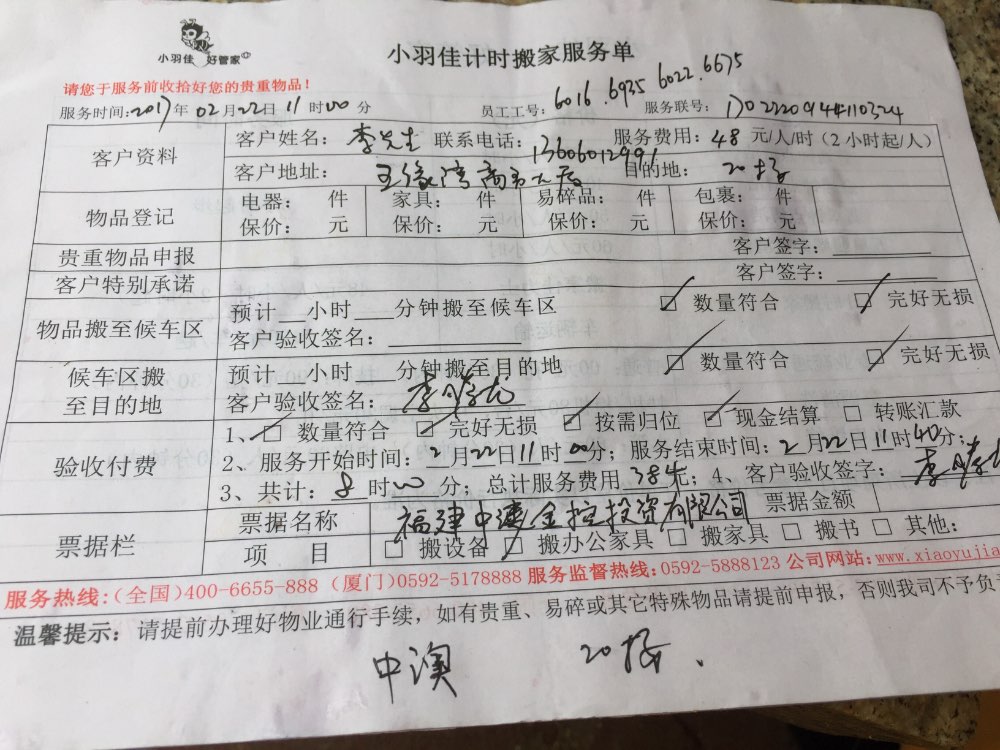 小羽佳 好管家
小羽佳计时搬家服务单
请您于服务前收拾好您的贵重物品！
服务时间：2017年02月22日11时00分 员工工号：6016.6935 6022.6675 服务联号：
客户资料 客户姓名：李先生 联系电话：13606012991 服务费用：48元/人/时（2小时起/人）
客户地址： 目的地：20楼
物品登记 电器： 件 家具： 件 易碎品： 件 包裹： 件
保价： 元 保价： 元 保价： 元 保价： 元
贵重物品申报 客户签字：
客户特别承诺 客户签字：
物品搬至候车区 预计__小时___分钟搬至候车区 ☑ 数量符合 ☑ 完好无损
客户验收签名：
候车区搬至目的地 预计__小时___分钟搬至目的地 ☑ 数量符合 ☑ 完好无损
客户验收签名：
验收付费 1、☑ 数量符合 ☑ 完好无损 ☑ 按需归位 ☑ 现金结算 □ 转账汇款
2、服务开始时间：2月22日11时00分；服务结束时间：2月22日11时40分；
3、共计：8时00分；总计服务费用 元；4、客户验收签字：
票据栏 票据名称 福建中澳金控投资有限公司 票据金额
项 目 □ 搬设备 ☑ 搬办公家具 □ 搬家具 □ 搬书 □ 其他：
服务热线：（全国）400-6655-888 （厦门）0592-5178888 服务监督热线：0592-5888123 公司网站：www.xiaoyujia
温馨提示：请提前办理好物业通行手续，如有贵重、易碎或其它特殊物品请提前申报，否则我司不予负
中澳 20楼.